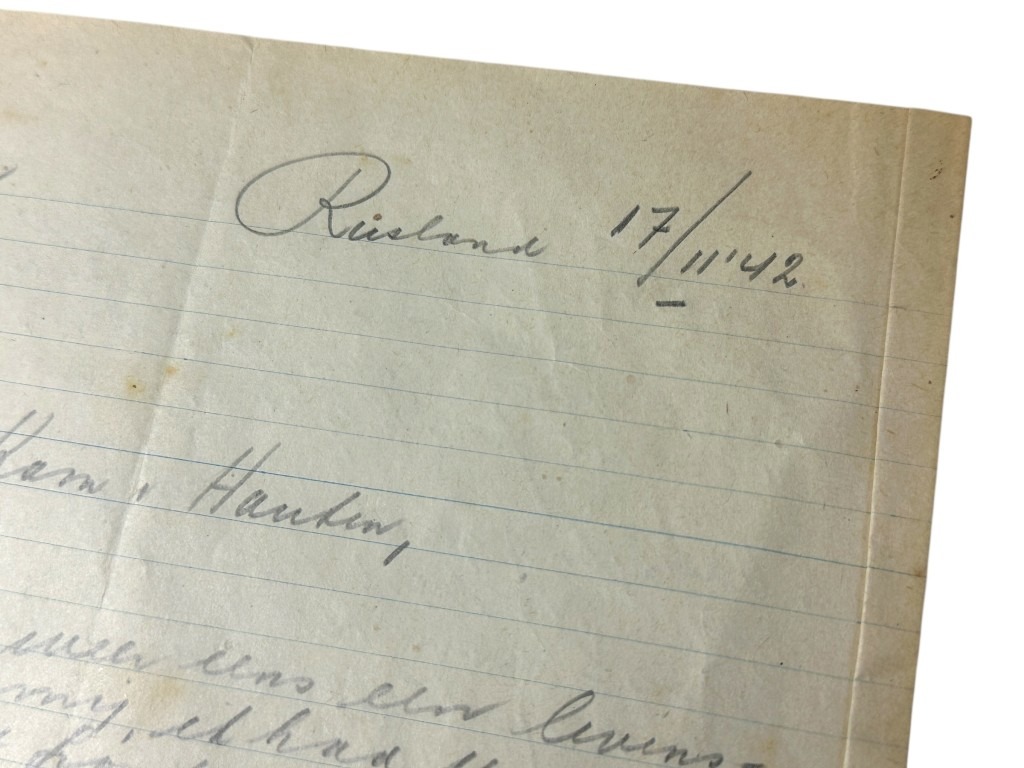 Rusland 17/11'42.
Hanten,
weer eens een levens-
my, ik had